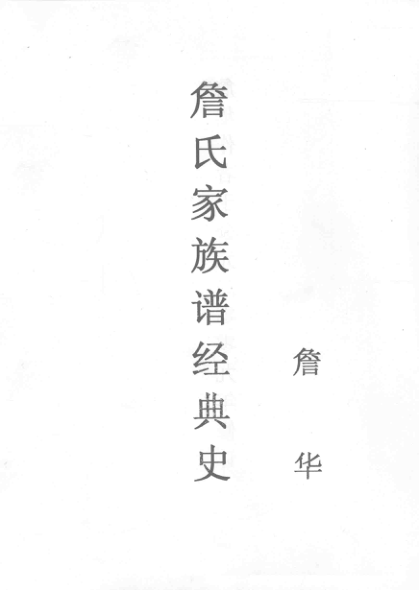 詹氏家族谱经典史
詹华